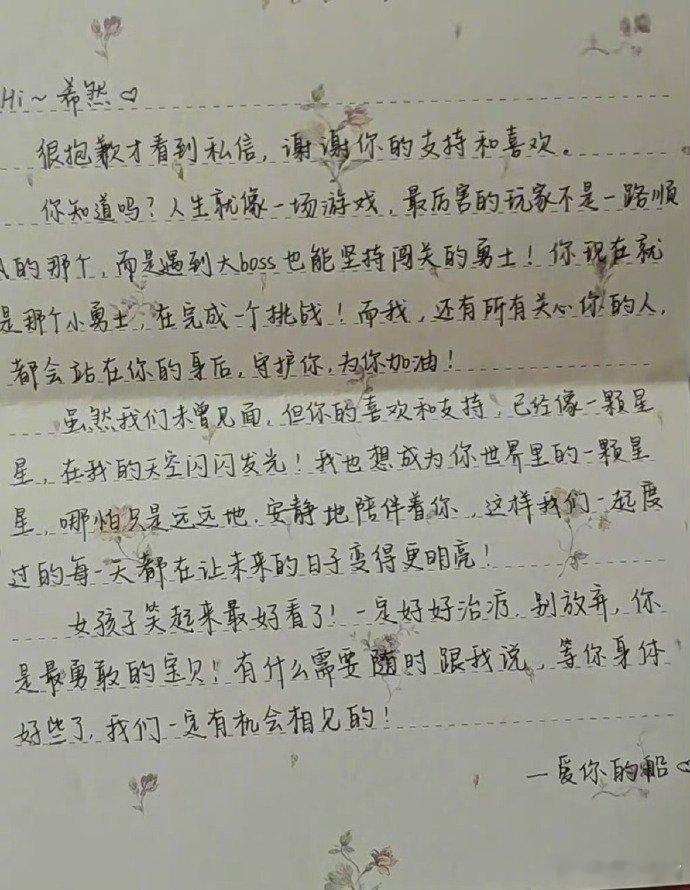 Hi～希然♡
很抱歉才看到私信，谢谢你的支持和喜欢。
你知道吗？人生就像一场游戏，最厉害的玩家不是一路顺
的那个，而是遇到大boss也能坚持闯关的勇士！你现在就
是那个小勇士，在完成一个挑战！而我，还有所有关心你的人，
都会站在你的身后，守护你，为你加油！
虽然我们未曾见面，但你的喜欢和支持，已经像一颗星
星，在我的天空闪闪发光！我也想成为你世界里的一颗星
星，哪怕只是远远地．安静地陪伴着你，这样我们一起度
过的每一天都在让未来的日子变得更明亮！
女孩子笑起来最好看了！一定好好治疗．别放弃，你
是最勇敢的宝贝！有什么需要随时跟我说，等你身体
好些了，我们一定有机会相见的！
—爱你的船♡